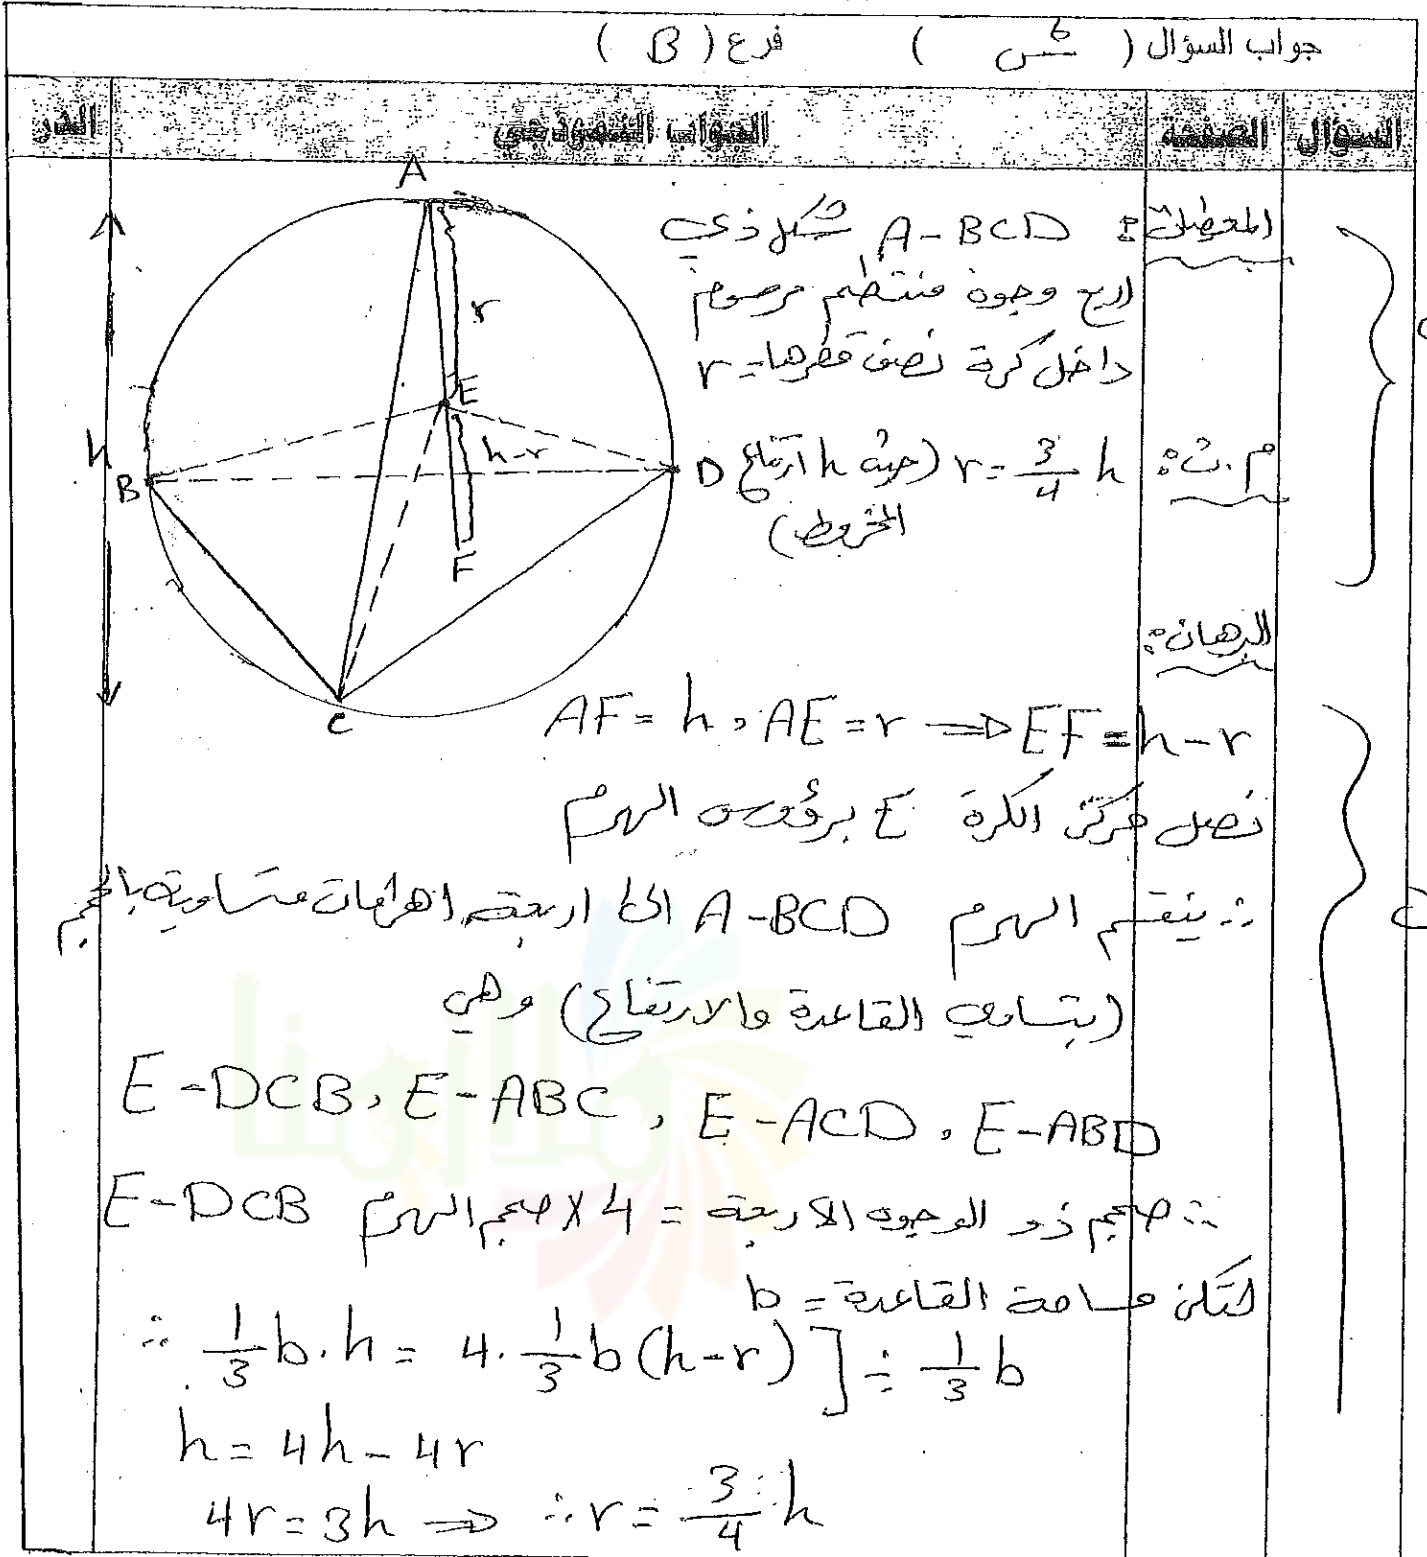 جواب السؤال ( س6 ) فرع ( B )
السؤال الصفحة الجواب النموذجي الدر
A
r
E
h-r
h
B
D
F
C
المعطيات: A-BCD شكل ذي
اربع وجوه منتظم مرسوم
داخل كرة نصف قطرها = r
م.ث: r = 3/4 h (حيث h ارتفاع
المخروط)
البرهان:
AF = h , AE = r ⇒ EF = h-r
نصل مركز الكرة E برؤوس الهرم
∴ ينقسم الهرم A-BCD الى اربعة اهرامات متساوية بالحجم
(بتساوي القاعدة والارتفاع) وهي
E-DCB, E-ABC, E-ACD, E-ABD
∴ حجم ذو الوجوه الاربعة = 4 X حجم الهرم E-DCB
لتكن مساحة القاعدة = b
∴ 1/3 b.h = 4. 1/3 b(h-r) ] ÷ 1/3 b
h = 4h - 4r
4r = 3h ⇒ ∴ r = 3/4 h
ملازمنا